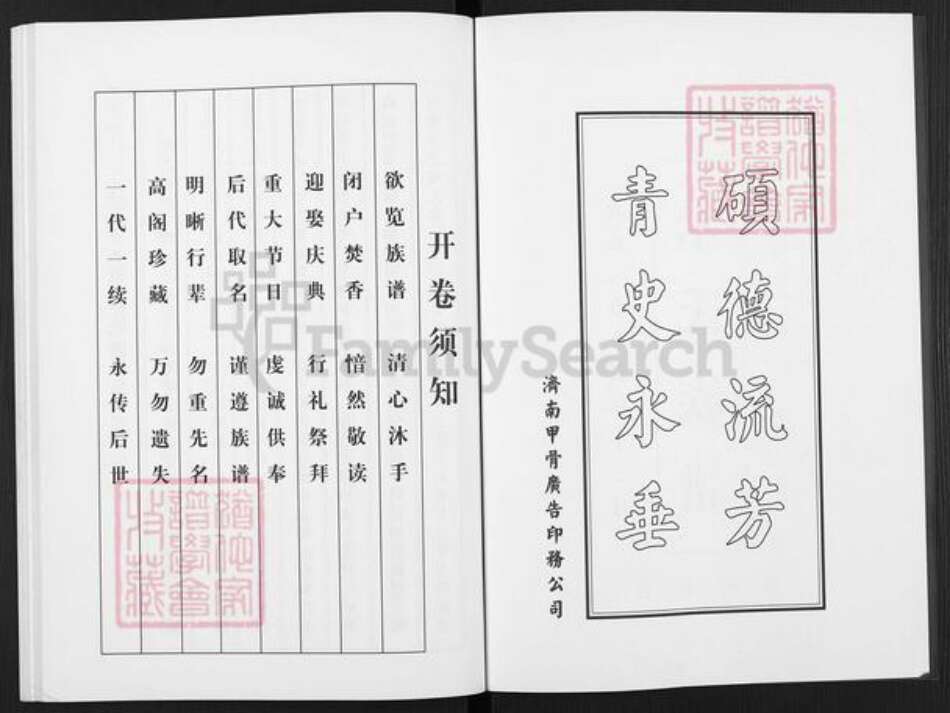 硕德流芳
青史永垂
濟南甲骨廣告印務公司
开卷须知
欲览族谱 清心沐手
闭户焚香 愔然敬读
迎娶庆典 行礼祭拜
重大节日 虔诚供奉
后代取名 谨遵族谱
明晰行辈 勿重先名
高阁珍藏 万勿遗失
一代一续 永传后世
FamilySearch